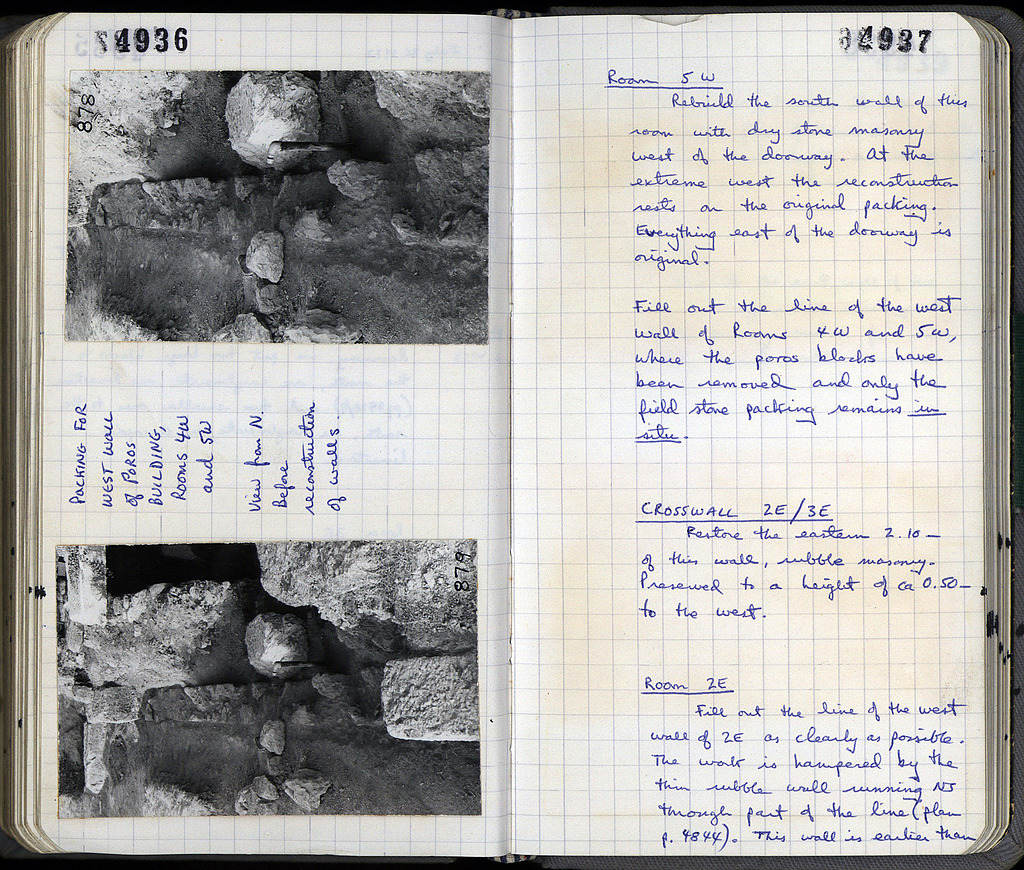 4936
878
PACKING FOR
WEST WALL
of POROS
BUILDING,
ROOMS 4W
and 5W
View from N.
Before
reconstruction
of walls.
879
4937
Room 5 W
Rebuild the south wall of this
room with dry stone masonry
west of the doorway. At the
extreme west the reconstruction
rests on the original packing.
Everything east of the doorway is
original.
Fill out the line of the west
wall of Rooms 4W and 5W,
where the poros blocks have
been removed and only the
field stone packing remains in
situ.
CROSSWALL 2E/3E
Restore the eastern 2.10 —
of this wall, rubble masonry.
Preserved to a height of ca 0.50 —
to the west.
Room 2E
Fill out the line of the west
wall of 2E as clearly as possible.
The work is hampered by the
thin rubble wall running NS
through part of the line (plan
p. 4844). This wall is earlier than